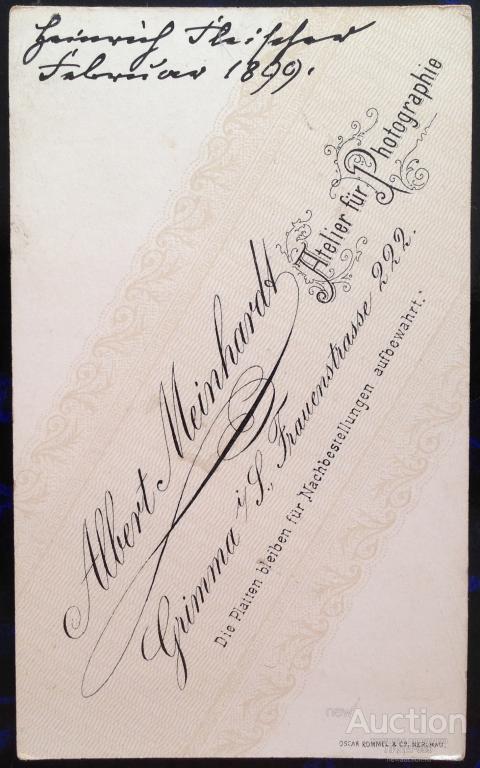 Heinrich Fleischer
Februar 1899.
Atelier für Photographie
Albert Meinhardt
Grimma i/S., Frauenstrasse 222.
Die Platten bleiben für Nachbestellungen aufbewahrt.
Auction
OSCAR ROMMEL & Co., MERLHAU.